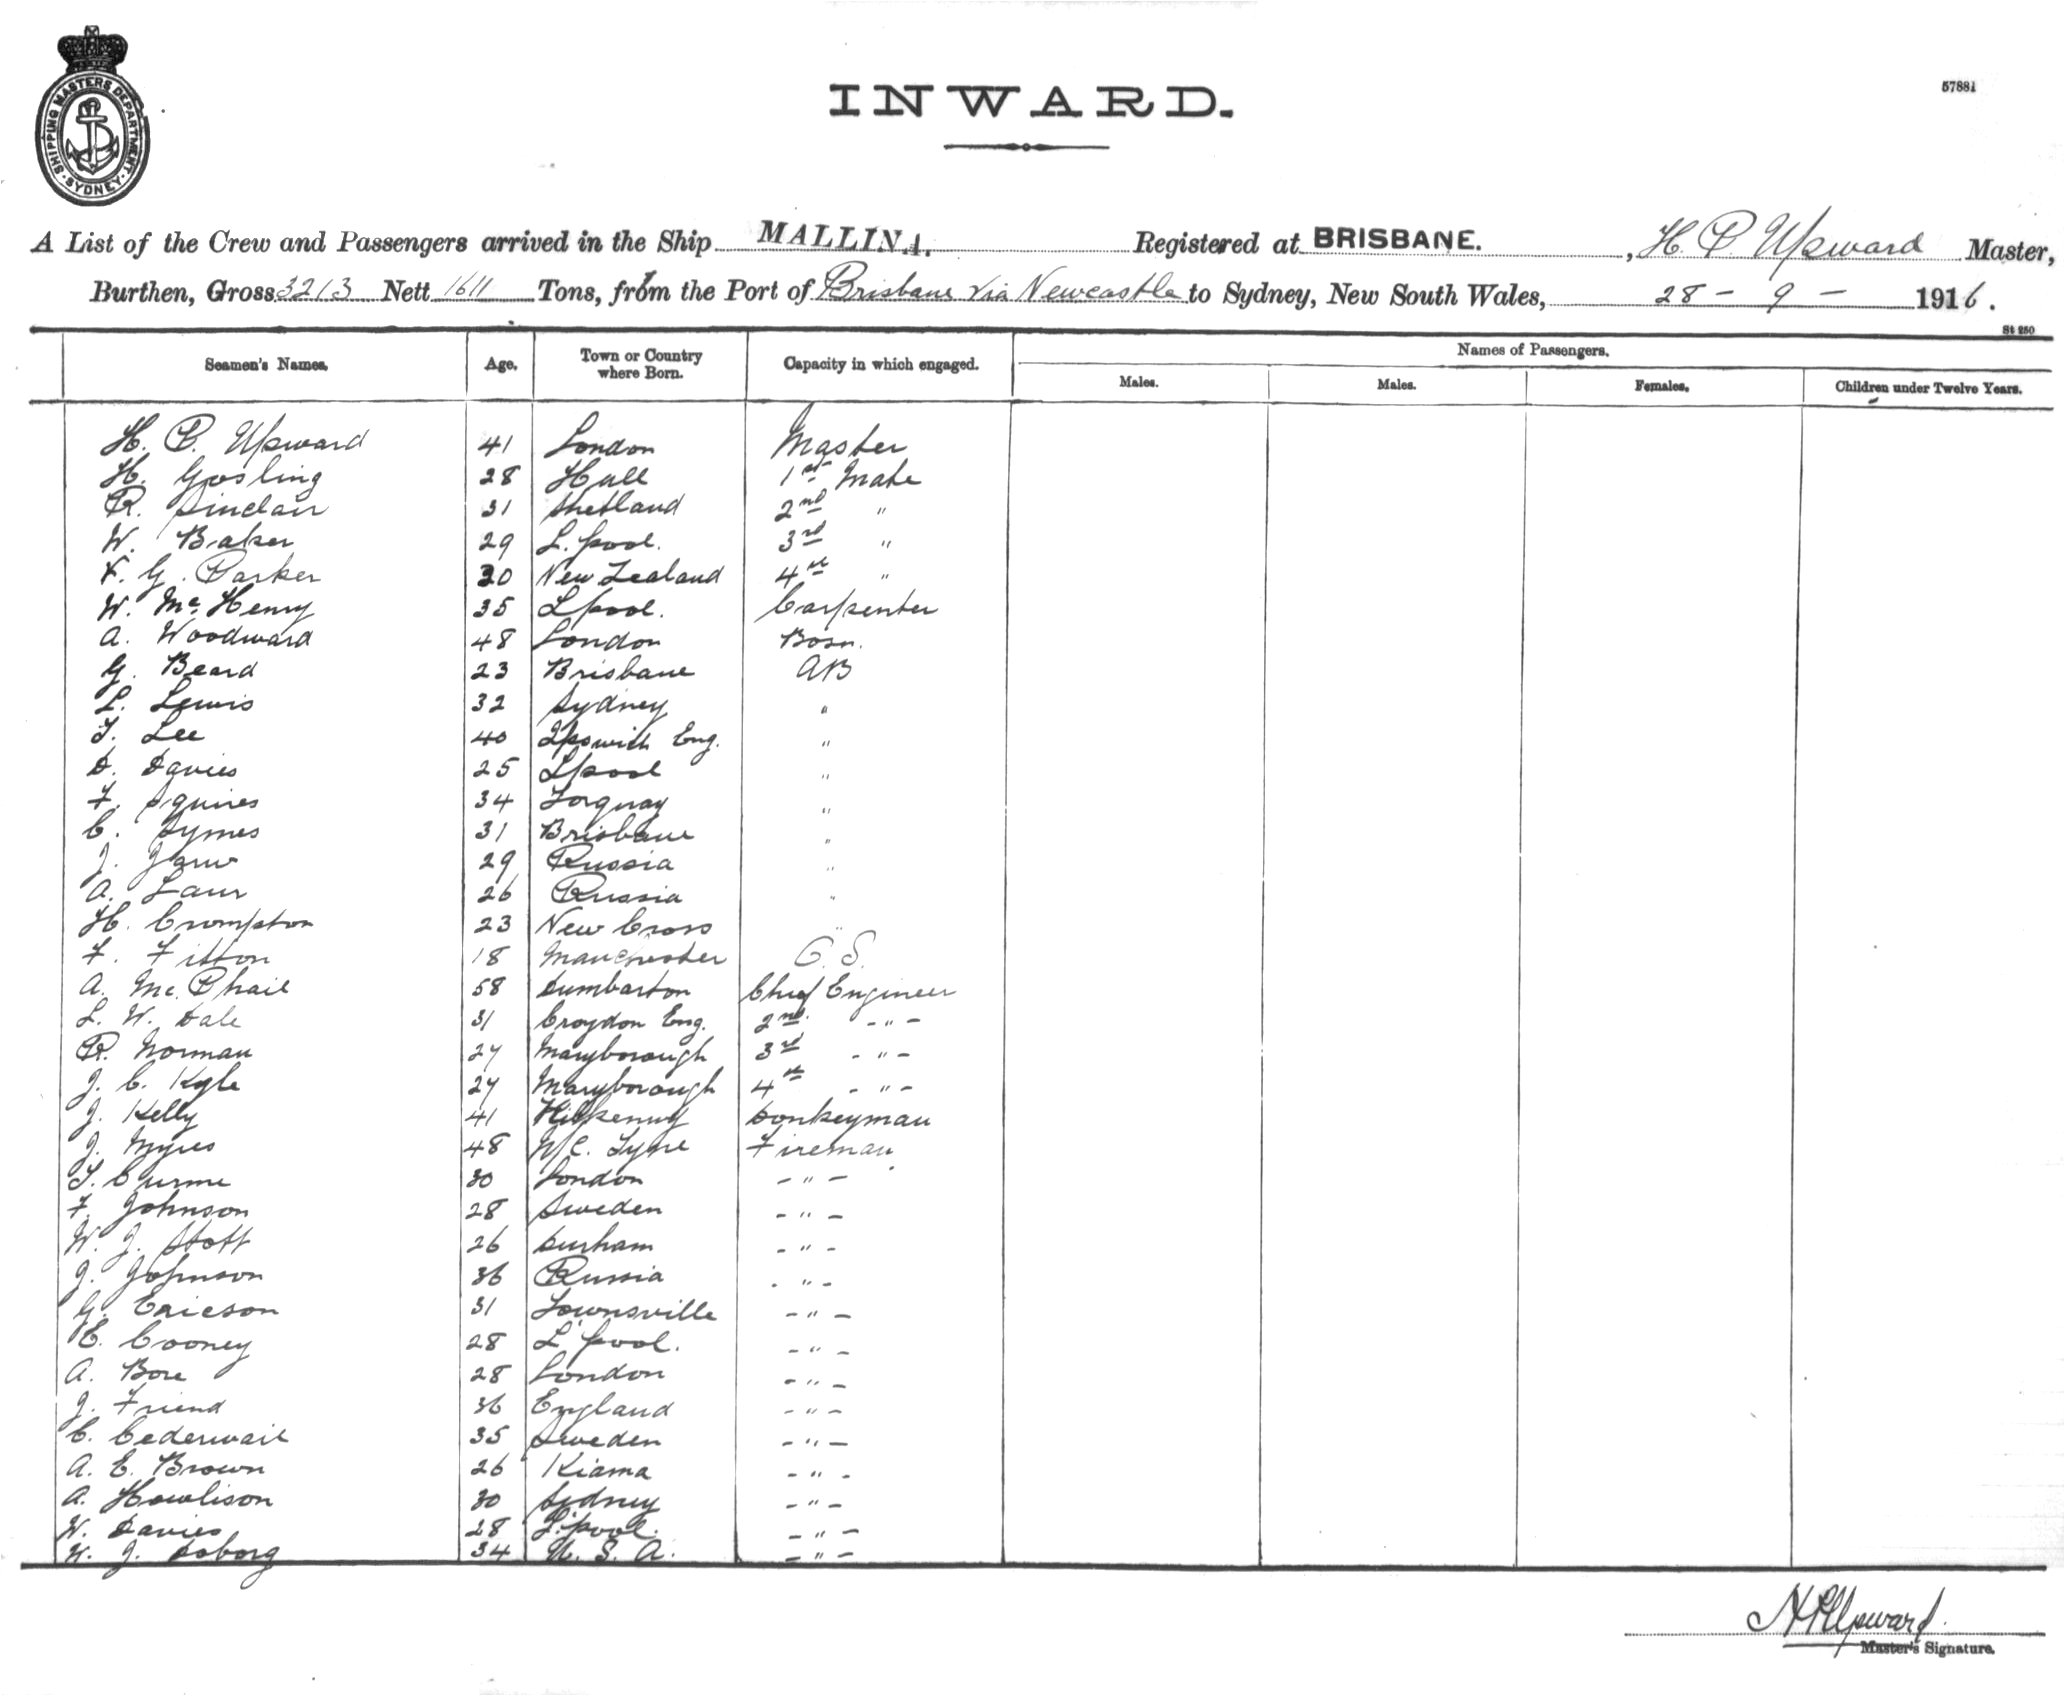 SHIPPING MASTERS DEPARTMENT · SYDNEY ·
INWARD.
57881
A List of the Crew and Passengers arrived in the Ship MALLINA. Registered at BRISBANE. , H. P. Upward Master,
Burthen, Gross 3213 Nett 1611 Tons, from the Port of Brisbane via Newcastle to Sydney, New South Wales, 28 - 9 - 1916.
St 250
Seamen's Names. Age. Town or Country where Born. Capacity in which engaged. Names of Passengers.
Males. Males. Females. Children under Twelve Years.
H. P. Upward 41 London Master
H. Gosling 28 Hull 1st Mate
R. Sinclair 31 Shetland 2nd "
W. Baker 29 L.pool. 3rd "
V. G. Parker 30 New Zealand 4th "
W. Mc Henry 35 Lpool. Carpenter
A. Woodward 48 London Bosn.
G. Beard 23 Brisbane AB
L. Lewis 32 Sydney "
T. Lee 40 Ipswich Eng. "
D. Davies 25 Lpool "
F. Squires 34 Torquay "
C. Symes 31 Brisbane "
J. 29 Russia "
A. Laur 26 Russia "
H. Crompton 23 New Cross "
F. Fitton 18 Manchester O.S.
A. Mc. Phail 58 Dumbarton Chief Engineer
L. W. Dale 31 Croydon Eng. 2nd. - " -
R. Norman 27 Maryborough 3rd - " -
J. C. Kyle 27 Maryborough 4th - " -
J. Kelly 41 Kilkenny Donkeyman
J. Myres 48 N/C. Tyne Fireman
T. 30 London - " -
F. Johnson 28 Sweden - " -
W. J. Stott 26 Durham - " -
J. Johnson 36 Russia - " -
G. Ericson 31 Townsville - " -
E. Cooney 28 L'pool. - " -
A. Bore 28 London - " -
J. Friend 36 England - " -
C. Cederwail 35 Sweden - " -
A. E. Brown 26 Kiama - " -
A. Howlison 30 Sydney - " -
W. Davies 28 L'pool. - " -
W. J. Soborg 34 U. S. A. - " -
H P Upward.
Master's Signature.